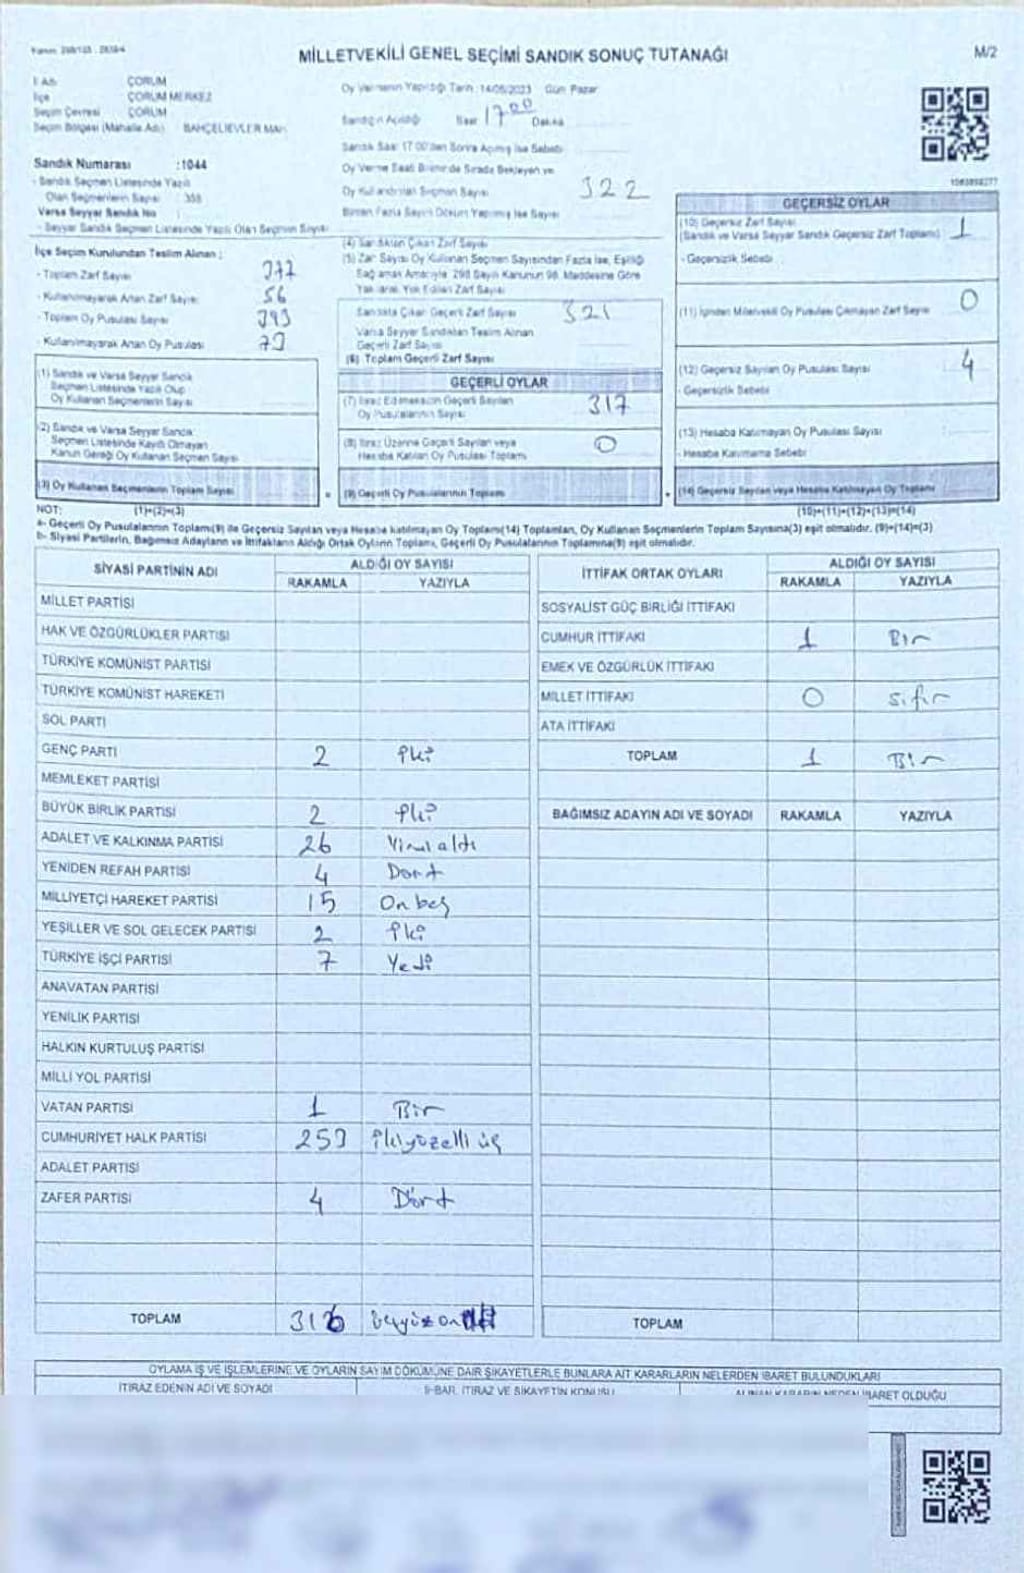 MİLLETVEKİLİ GENEL SEÇİMİ SANDIK SONUÇ TUTANAĞI
M/2
İl Adı ÇORUM
İlçe ÇORUM MERKEZ
Seçim Çevresi ÇORUM
Seçim Bölgesi (Mahalle Adı) BAHÇELİEVLER MAH.
Oy Vermenin Yapıldığı Tarih : 14/05/2023 Gün Pazar
Sandığın Açıldığı Saat 17 00 Dakika
Sandık Saat 17:00'den Sonra Açılmış İse Sebebi
Oy Verme Saati Bitiminde Sırada Bekleyen ve
Oy Kullandırılan Seçmen Sayısı 322
Birden Fazla Sayım Döküm Yapılmış İse Sayısı
Sandık Numarası :1044
- Sandık Seçmen Listesinde Yazılı
Olan Seçmenlerin Sayısı : 358
Varsa Seyyar Sandık No
- Seyyar Sandık Seçmen Listesinde Yazılı Olan Seçmen Sayısı
İlçe Seçim Kurulundan Teslim Alınan :
- Toplam Zarf Sayısı 377
- Kullanılmayarak Artan Zarf Sayısı 56
- Toplam Oy Pusulası Sayısı 393
- Kullanılmayarak Artan Oy Pusulası
(1) Sandık ve Varsa Seyyar Sandık
Seçmen Listesinde Yazılı Olup
Oy Kullanan Seçmenlerin Sayısı
(2) Sandık ve Varsa Seyyar Sandık
Seçmen Listesinde Kayıtlı Olmayan
Kanun Gereği Oy Kullanan Seçmen Sayısı
(3) Oy Kullanan Seçmenlerin Toplam Sayısı
(4) Sandıktan Çıkan Zarf Sayısı
(5) Zarf Sayısı Oy Kullanan Seçmen Sayısından Fazla İse, Eşitliği
Sağlamak Amacıyla 298 Sayılı Kanunun 98. Maddesine Göre
Yakılarak Yok Edilen Zarf Sayısı
Sandıkta Çıkan Geçerli Zarf Sayısı 321
Varsa Seyyar Sandıktan Teslim Alınan
Geçerli Zarf Sayısı
(6) Toplam Geçerli Zarf Sayısı
GEÇERLİ OYLAR
(7) İtiraz Edilmeksizin Geçerli Sayılan
Oy Pusulalarının Sayısı 317
(8) İtiraz Üzerine Geçerli Sayılan veya
Hesaba Katılan Oy Pusulası Toplamı 0
(9) Geçerli Oy Pusulalarının Toplamı
GEÇERSİZ OYLAR
(10) Geçersiz Zarf Sayısı
(Sandık ve Varsa Seyyar Sandık Geçersiz Zarf Toplamı) 1
- Geçersizlik Sebebi
(11) İçinden Milletvekili Oy Pusulası Çıkmayan Zarf Sayısı 0
(12) Geçersiz Sayılan Oy Pusulası Sayısı 4
- Geçersizlik Sebebi
(13) Hesaba Katılmayan Oy Pusulası Sayısı
- Hesaba Katılmama Sebebi
(14) Geçersiz Sayılan veya Hesaba Katılmayan Oy Toplamı
NOT: (1)+(2)=(3) (10)+(11)+(12)+(13)=(14)
a- Geçerli Oy Pusulalarının Toplamı(9) ile Geçersiz Sayılan veya Hesaba katılmayan Oy Toplamı(14) Toplamları, Oy Kullanan Seçmenlerin Toplam Sayısına(3) eşit olmalıdır. (9)+(14)=(3)
b- Siyasi Partilerin, Bağımsız Adayların ve İttifakların Aldığı Ortak Oyların Toplamı, Geçerli Oy Pusulalarının Toplamına(9) eşit olmalıdır.
SİYASİ PARTİNİN ADI ALDIĞI OY SAYISI
RAKAMLA YAZIYLA
MİLLET PARTİSİ
HAK VE ÖZGÜRLÜKLER PARTİSİ
TÜRKİYE KOMÜNİST PARTİSİ
TÜRKİYE KOMÜNİST HAREKETİ
SOL PARTİ
GENÇ PARTİ 2 İki
MEMLEKET PARTİSİ
BÜYÜK BİRLİK PARTİSİ 2 İki
ADALET VE KALKINMA PARTİSİ 26 Yirmi altı
YENİDEN REFAH PARTİSİ 4 Dört
MİLLİYETÇİ HAREKET PARTİSİ 15 On beş
YEŞİLLER VE SOL GELECEK PARTİSİ 2 İki
TÜRKİYE İŞÇİ PARTİSİ 7 Yedi
ANAVATAN PARTİSİ
YENİLİK PARTİSİ
HALKIN KURTULUŞ PARTİSİ
MİLLİ YOL PARTİSİ
VATAN PARTİSİ 1 Bir
CUMHURİYET HALK PARTİSİ 253 İkiyüzelli üç
ADALET PARTİSİ
ZAFER PARTİSİ 4 Dört
TOPLAM 316
İTTİFAK ORTAK OYLARI ALDIĞI OY SAYISI
RAKAMLA YAZIYLA
SOSYALİST GÜÇ BİRLİĞİ İTTİFAKI
CUMHUR İTTİFAKI 1 Bir
EMEK VE ÖZGÜRLÜK İTTİFAKI
MİLLET İTTİFAKI 0 Sıfır
ATA İTTİFAKI
TOPLAM 1 Bir
BAĞIMSIZ ADAYIN ADI VE SOYADI RAKAMLA YAZIYLA
TOPLAM
OYLAMA İŞ VE İŞLEMLERİNE VE OYLARIN SAYIM DÖKÜMÜNE DAİR ŞİKAYETLERLE BUNLARA AİT KARARLARIN NELERDEN İBARET BULUNDUKLARI
İTİRAZ EDENİN ADI VE SOYADI İHBAR, İTİRAZ VE ŞİKAYETİN KONUSU ALINAN KARARIN NEDEN İBARET OLDUĞU